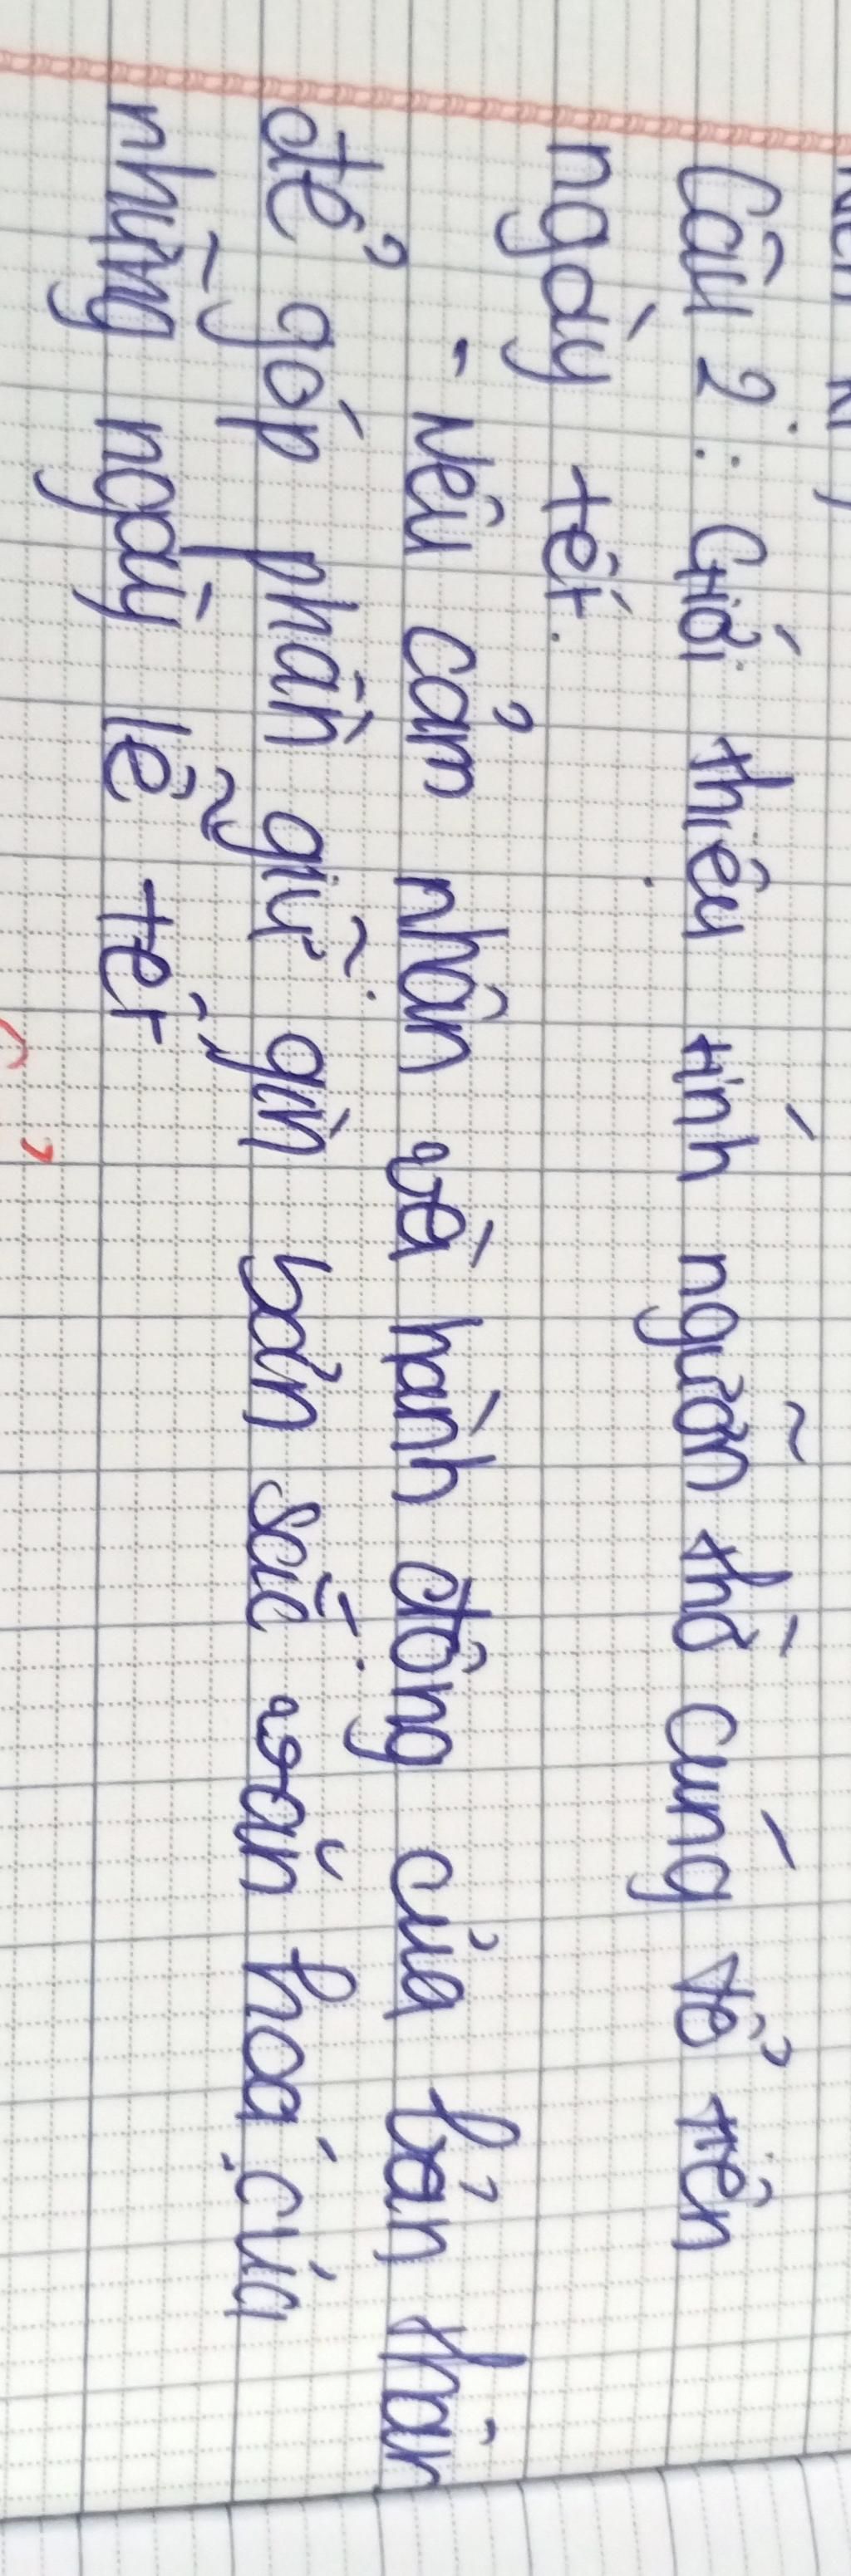 Câu 2: Giới thiệu tính ngưỡn thờ cúng tổ tiên
ngày tết.
- Nêu cảm nhận và hành động của bản thân
để góp phần giữ gìn bản sắc văn hoá của
những ngày lễ tết